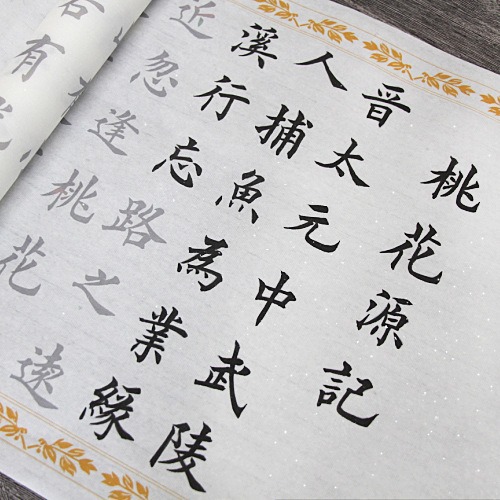 桃花源記
晋太元中武陵
人捕魚為業緣
溪行忘路之遠
近忽逢桃花
有